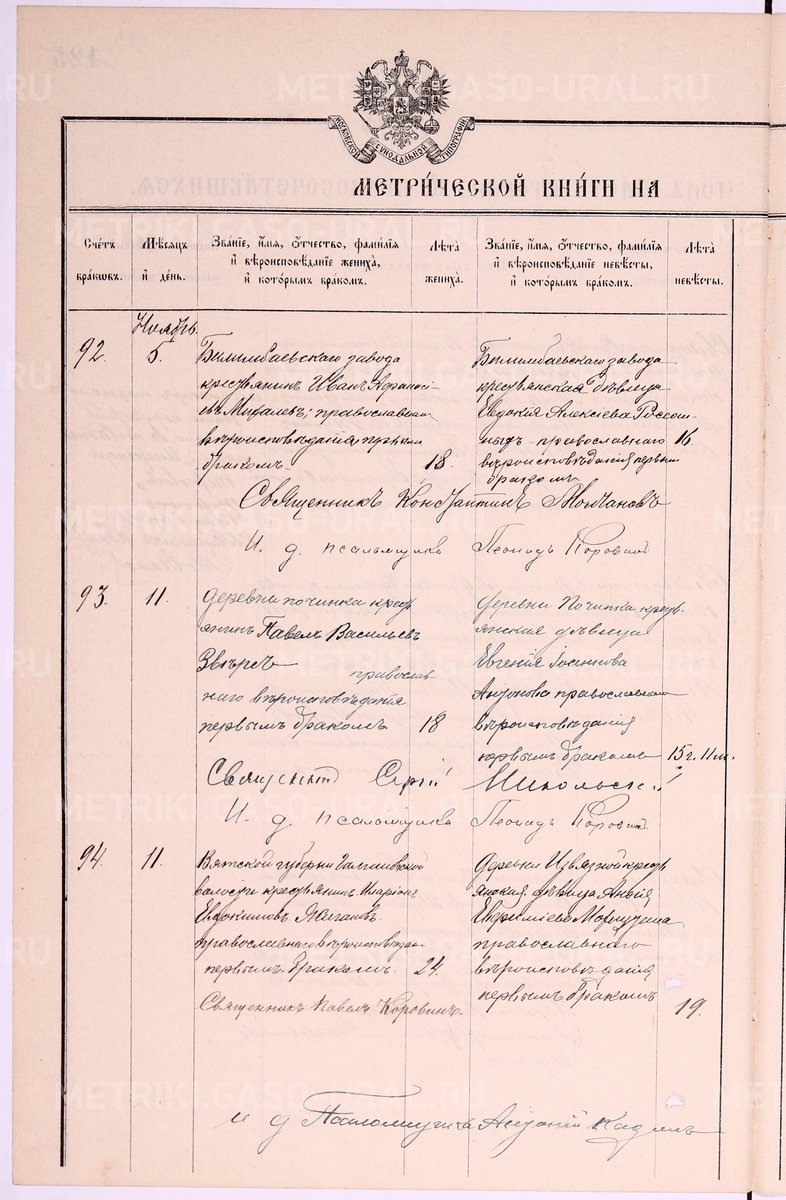 METRIKI.GASO-URAL.RU
МОСКОВСКОЙ СѴНОДАЛЬНОЙ ТИПОГРАФІИ
МЕТРИ́ЧЕСКОЙ КНИ́ГИ НА
Сче́тъ бра́кѡвъ.
Мѣ́сяцъ и҆ де́нь.
Зва́нїе, и҆́мя, ѻ҆́тчество, фамѝлїя и҆ вѣроисповѣ́данїе жениха̀, и҆ кото́рымъ бра́комъ.
Лѣ́та жениха̀.
Зва́нїе, и҆́мя, ѻ҆́тчество, фамѝлїя и҆ вѣроисповѣ́данїе невѣ́сты, и҆ кото́рымъ бра́комъ.
Лѣ́та невѣ́сты.
Ноябрь.
92.
5.
Билимбаевскаго завода
крестьянинъ Иванъ
православнаго
вѣроисповѣданія, первымъ
бракомъ
18.
Билимбаевскаго завода
крестьянская дѣвица
Евдокія Алексіева
православнаго
вѣроисповѣданія первымъ
бракомъ
16.
Священникъ Константинъ Молчановъ
И. д. псаломщика Леонидъ Коровинъ
93.
11.
деревни починка кресть
янинъ Павелъ Васильевъ
Звѣревъ православ
наго вѣроисповѣданія
первымъ бракомъ
18
деревни Починка кресть
янская дѣвица
Евгенія Іоаннова
Антонова православнаго
вѣроисповѣданія
первымъ бракомъ
15 г. 11 м.
Священникъ Сергій Никольскій
И. д. псаломщика Леонидъ Коровинъ
94.
11.
Вятской губерніи
волости крестьянинъ Иларіонъ
Евдокимовъ Жигаловъ
православнаго вѣроисповѣдан.
первымъ бракомъ.
24.
Деревни Извязной кресть
янская дѣвица
Евфиміева
православнаго
вѣроисповѣданія
первымъ бракомъ
19.
Священникъ Павелъ Коровинъ.
и д Псаломщика